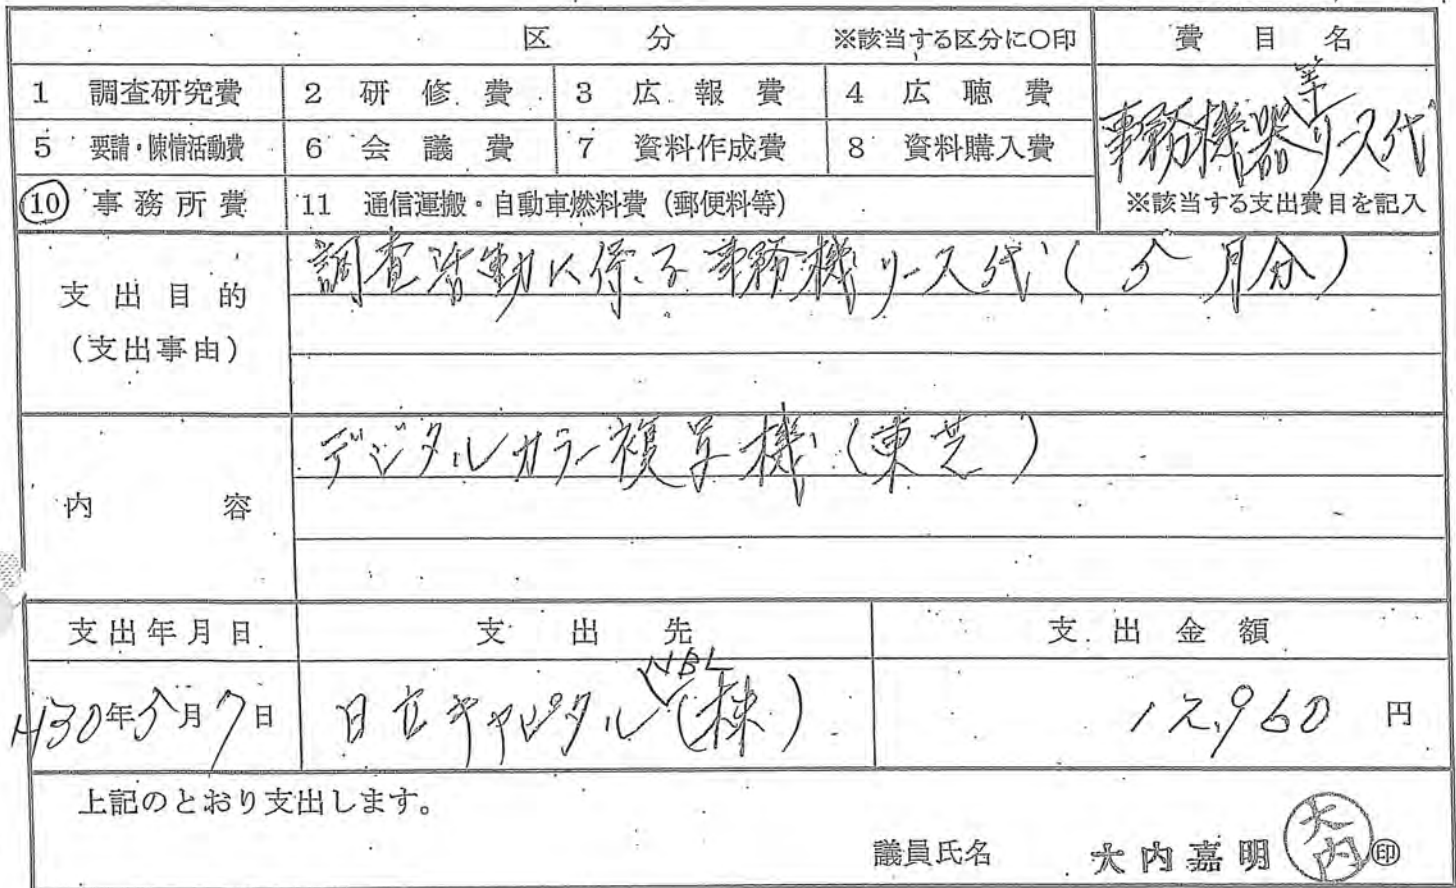 区 分 ※該当する区分に○印 費 目 名
1 調査研究費 2 研 修 費 3 広 報 費 4 広 聴 費
等
事務機器リース代
5 要請・陳情活動費 6 会 議 費 7 資料作成費 8 資料購入費
10 事務所費 11 通信運搬・自動車燃料費(郵便料等) ※該当する支出費目を記入
支出目的
(支出事由)
調査活動に係る事務機リース代(5月分)
内 容
デジタルカラー複写機(東芝)
支出年月日 支 出 先 支 出 金 額
NBL
H30年5月7日 日立キャピタル(株) 12,960 円
上記のとおり支出します。
議員氏名 大内嘉明 大内 印